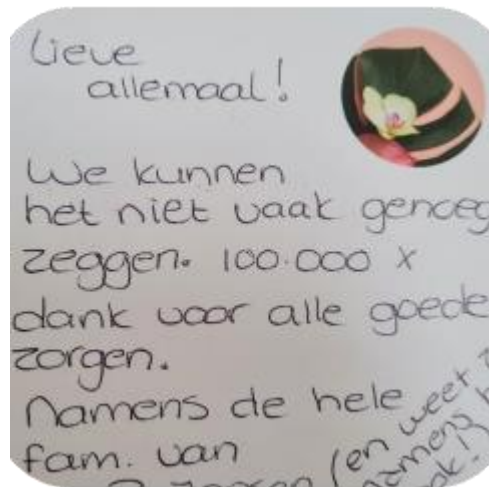 Lieve
allemaal!
We kunnen
het niet vaak genoeg
zeggen. 100.000 x
dank voor alle goede
zorgen.
Namens de hele
fam. van
(en weet
namens